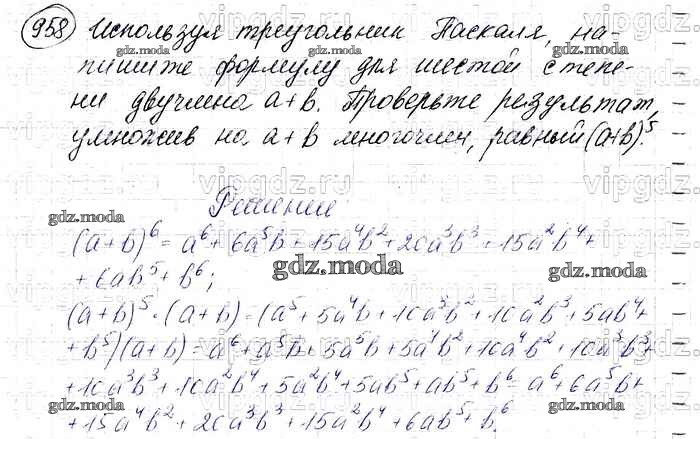 958 Используя треугольник Паскаля, на-
пишите формулу для шестой степе-
ни двучлена a+b. Проверьте результат,
умножив на a+b многочлен, равный (a+b)⁵.
Решение
(a+b)⁶ = a⁶ + 6a⁵b + 15a⁴b² + 20a³b³ + 15a²b⁴ +
+ 6ab⁵ + b⁶;
(a+b)⁵ · (a+b) = (a⁵ + 5a⁴b + 10a³b² + 10a²b³ + 5ab⁴ +
+ b⁵)(a+b) = a⁶ + a⁵b + 5a⁵b + 5a⁴b² + 10a⁴b² + 10a³b³ +
+ 10a³b³ + 10a²b⁴ + 5a²b⁴ + 5ab⁵ + ab⁵ + b⁶ = a⁶ + 6a⁵b +
+ 15a⁴b² + 20a³b³ + 15a²b⁴ + 6ab⁵ + b⁶.
gdz.moda
vipgdz.ru